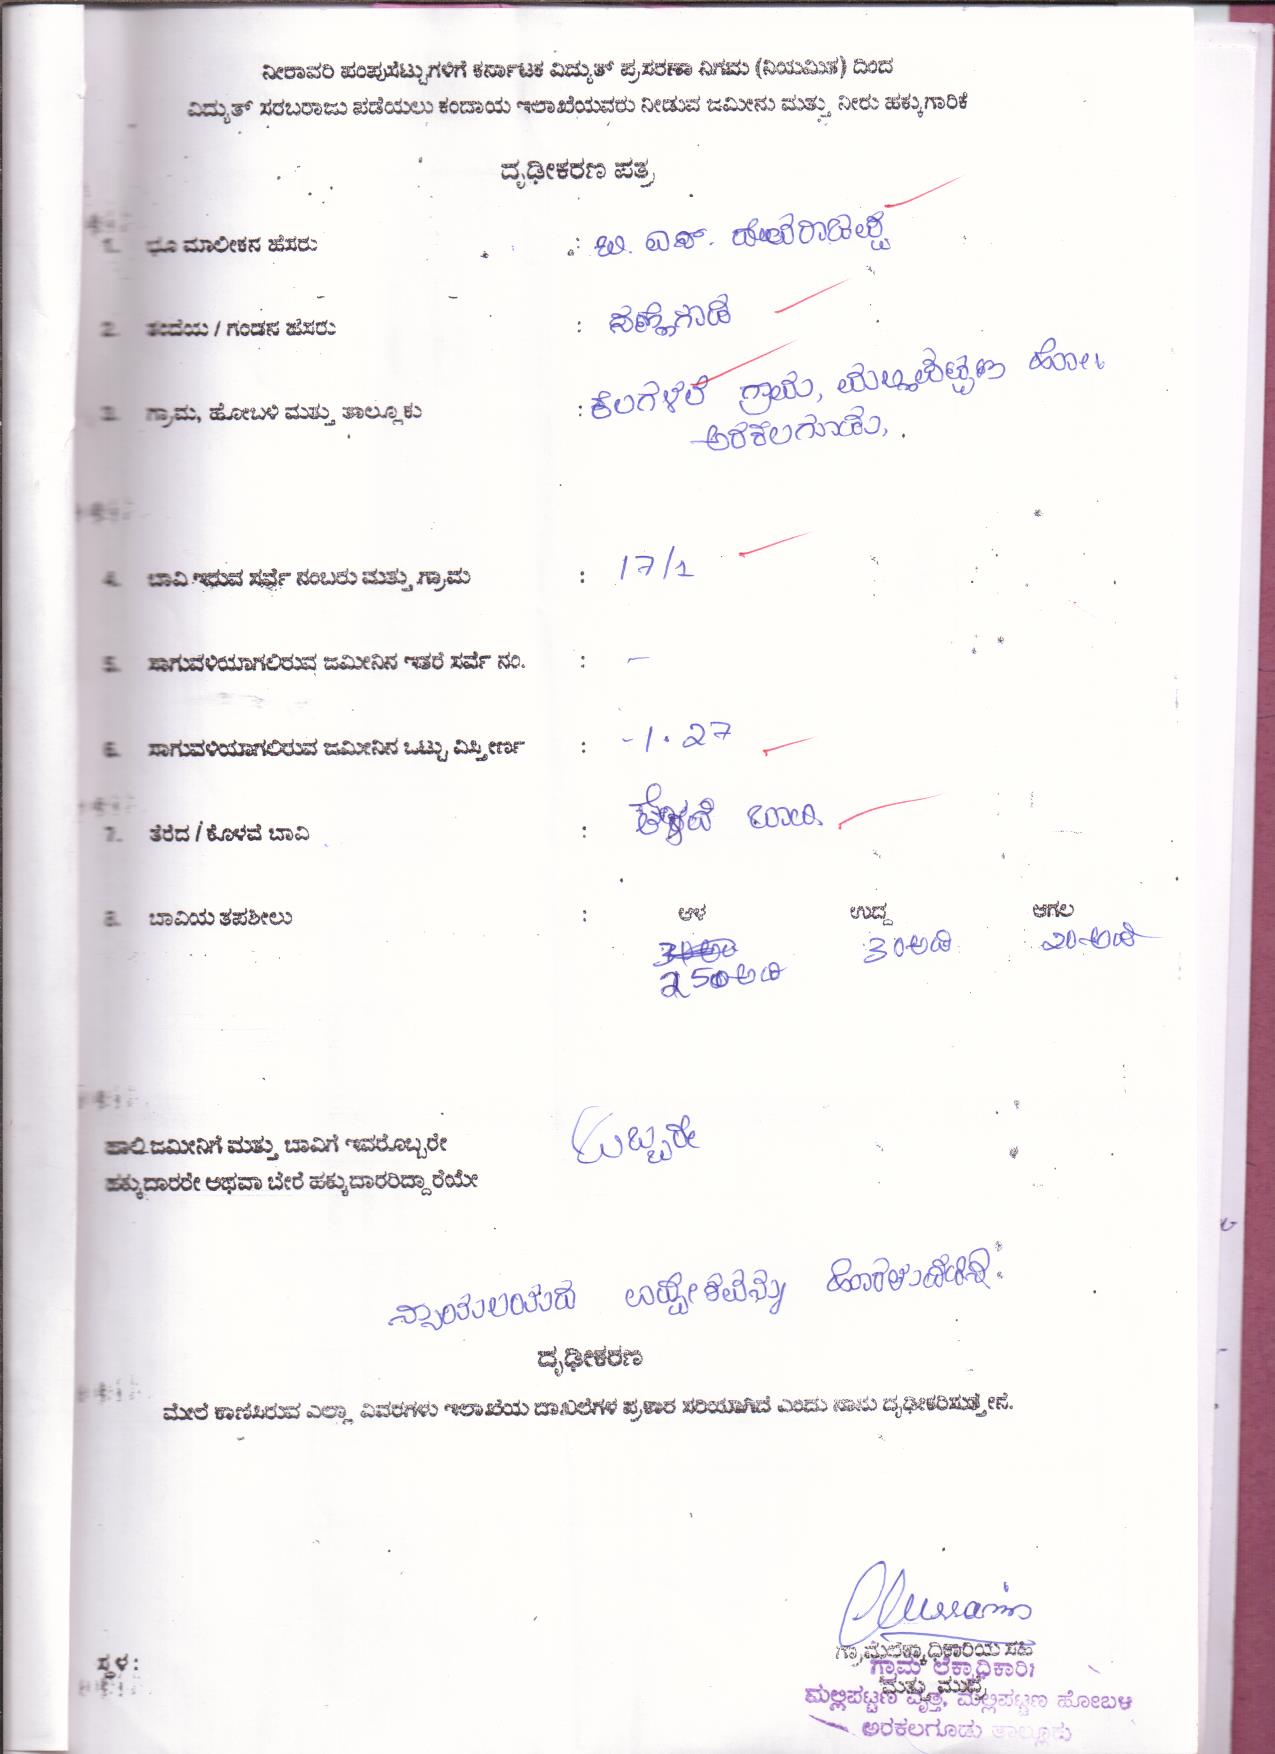 ನೀರಾವರಿ ಪಂಪುಸೆಟ್ಟುಗಳಿಗೆ ಕರ್ನಾಟಕ ವಿದ್ಯುತ್ ಪ್ರಸರಣಾ ನಿಗಮ (ನಿಯಮಿತ) ದಿಂದ
ವಿದ್ಯುತ್ ಸರಬರಾಜು ಪಡೆಯಲು ಕಂದಾಯ ಇಲಾಖೆಯವರು ನೀಡುವ ಜಮೀನು ಮತ್ತು ನೀರು ಹಕ್ಕುಗಾರಿಕೆ
ದೃಢೀಕರಣ ಪತ್ರ
1. ಭೂ ಮಾಲೀಕನ ಹೆಸರು : ಬಿ. ಎಸ್.
2. ತಂದೆಯ / ಗಂಡನ ಹೆಸರು :
3. ಗ್ರಾಮ, ಹೋಬಳಿ ಮತ್ತು ತಾಲ್ಲೂಕು : ಗ್ರಾಮ, ಮಲ್ಲಿಪಟ್ಟಣ ಹೋ||
ಅರಕಲಗೂಡು.
4. ಬಾವಿ ಇರುವ ಸರ್ವೆ ನಂಬರು ಮತ್ತು ಗ್ರಾಮ : 17/1
5. ಸಾಗುವಳಿಯಾಗಲಿರುವ ಜಮೀನಿನ ಇತರೆ ಸರ್ವೆ ನಂ. : —
6. ಸಾಗುವಳಿಯಾಗಲಿರುವ ಜಮೀನಿನ ಒಟ್ಟು ವಿಸ್ತೀರ್ಣ : -1.27
7. ತೆರೆದ / ಕೊಳವೆ ಬಾವಿ : ಕೊಳವೆ ಬಾವಿ
8. ಬಾವಿಯ ತಪಶೀಲು : ಆಳ ಉದ್ದ ಅಗಲ
30ಅಡಿ 30ಅಡಿ 20ಅಡಿ
250ಅಡಿ
ಹಾಲಿ ಜಮೀನಿಗೆ ಮತ್ತು ಬಾವಿಗೆ ಇವರೊಬ್ಬರೇ ಒಬ್ಬರೇ
ಹಕ್ಕುದಾರರೇ ಅಥವಾ ಬೇರೆ ಹಕ್ಕುದಾರರಿದ್ದಾರೆಯೇ
ದೃಢೀಕರಣ
ಮೇಲೆ ಕಾಣಿಸಿರುವ ಎಲ್ಲಾ ವಿವರಗಳು ಇಲಾಖೆಯ ದಾಖಲೆಗಳ ಪ್ರಕಾರ ಸರಿಯಾಗಿದೆ ಎಂದು ನಾನು ದೃಢೀಕರಿಸುತ್ತೇನೆ.
ಗ್ರಾಮಲೆಕ್ಕಾಧಿಕಾರಿಯ ಸಹಿ
ಸ್ಥಳ :
ಗ್ರಾಮ ಲೆಕ್ಕಾಧಿಕಾರಿ
ಮತ್ತು ಮುದ್ರೆ
ಮಲ್ಲಿಪಟ್ಟಣ ವೃತ್ತ, ಮಲ್ಲಿಪಟ್ಟಣ ಹೋಬಳಿ
ಅರಕಲಗೂಡು ತಾಲ್ಲೂಕು